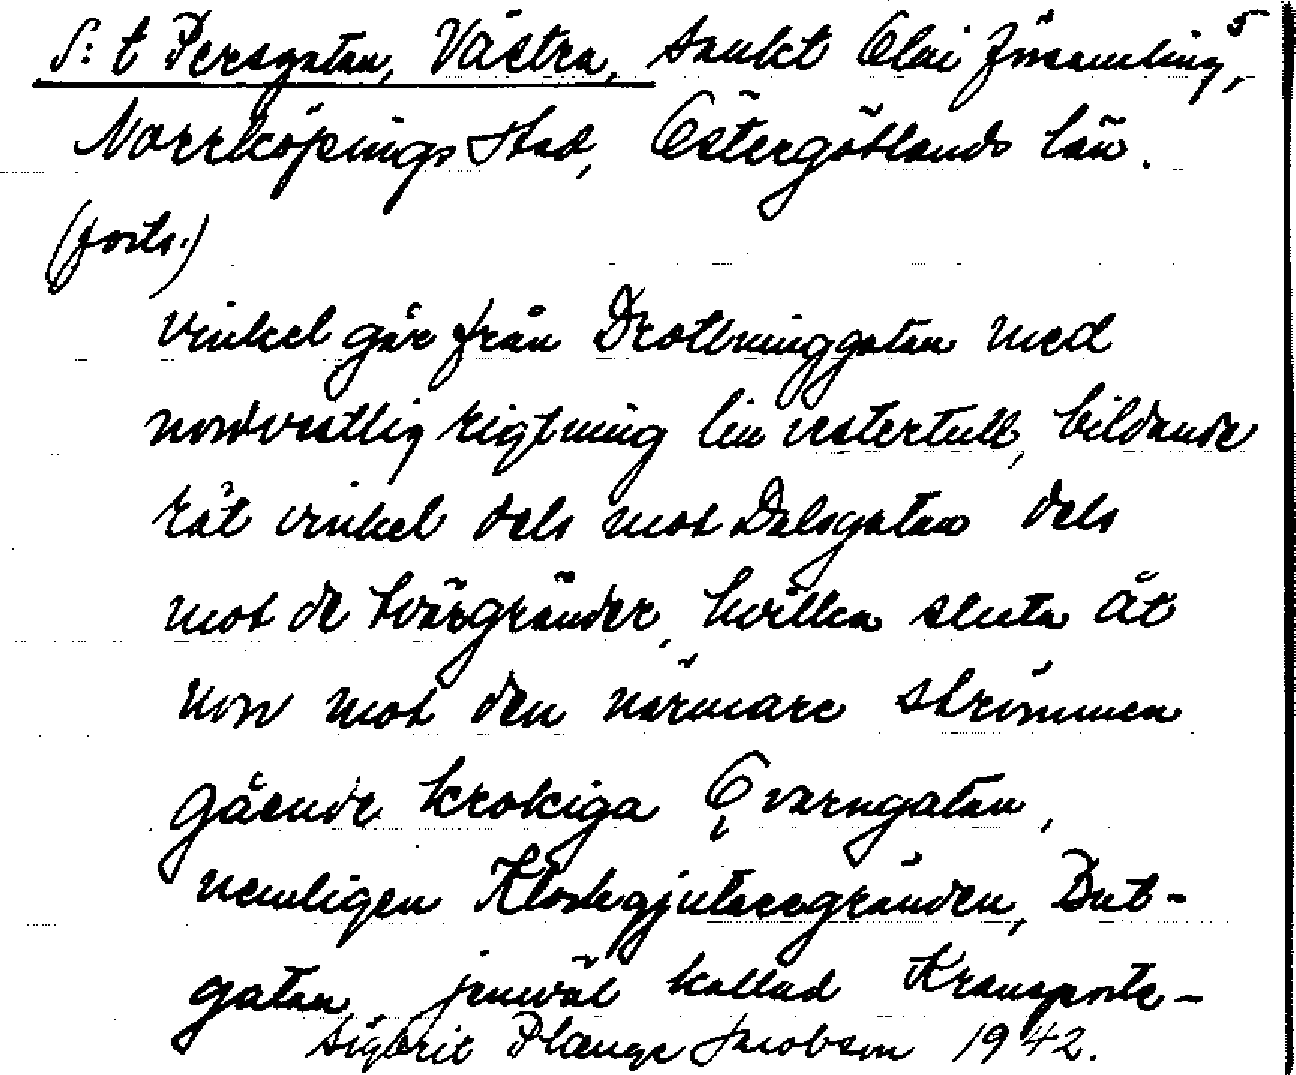 S:t Persgatan, Västra, Sankt Olai församling, 5
Norrköpings stad, Östergötlands län.
(forts.)
vinkel går från Drottninggatan med
nordvestlig rigtning lin vestertull, bildande
rät vinkel dels mot Dalsgatan dels
mot de tvärgränder, hvilka sluta åt
norr mot den närmare strömmen
gående krokiga Qvarngatan,
nemligen Klockgjutaregränden, Dub-
gatan jemväl kallad Kransporte-
Sigbrit Plænge Jacobson 1942.